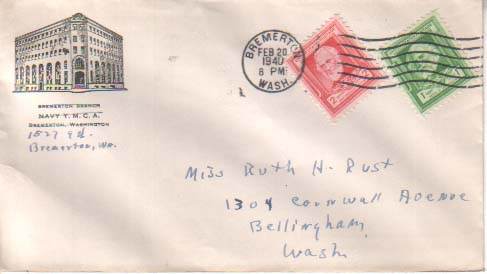 BREMERTON DESMOR
NAVY Y.M.C.A.
BREMERTON, WASHINGTON
Bremerton, Wn.
BREMERTON
FEB 20
1940
6 PM
WASH.
Miss Ruth H. Rust
1304 Cornwall Avenue
Bellingham,
Wash.